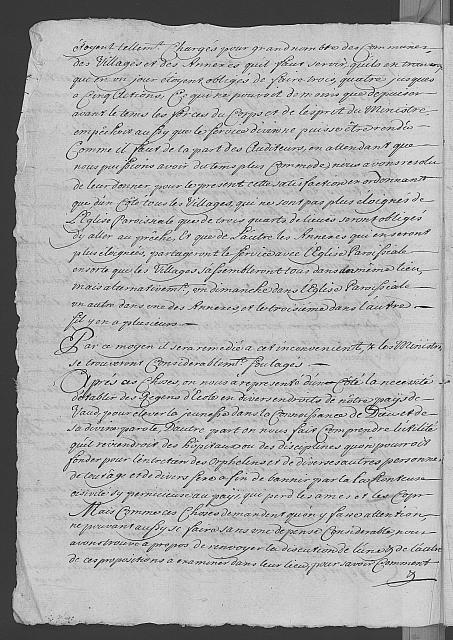 étoyent tellemt. Chargés pour grand nombre des Communes
des Villages et des Annexes qu'il faut servir, qu'ils en trouvoyent
quen un jour étoyent obligés de faire trois, quatre jusques
a Cinq Actions, Ce qui ne pouvoit de moins que depuiser
avant le tems les forces du Corps et de l'esprit du Ministre
empêchoit aussy que le service divin ne puisse être rendu
Comme il faut de la part des Auditeurs, en attendant que
nous puissions avoir du tems plus Commode, nous avons resolu
de leur donner pour le present cette satisfaction en ordonnant
que d'un Côté tous les Villages, qui ne sont pas plus éloignés de
l'Eglise Paroissiale que de trois quarts de lieües seront obligés
d'y aller au prêche, Et que de l'autre les Annexes qui en seront
plus éloignées, partageront le service avec l'Eglise Paroissiale
en sorte que les Villages s'assembleront tous dans le même lieu,
mais alternativemt., un dimanche dans l'Eglise Paroissiale
un autre dans une des Annexes, et le troisieme dans l'autre
s'il y en a plusieurs
Par ce moyen il sera remedié a cet inconvenient, & les Ministres
se trouveront Considerablemt. soulagés
Apres ces Choses, on nous a representé d'un Côté la necessité
d'etablir des Regens d'Ecole en divers endroits de nôtre pays de
Vaud pour elever la jeunesse dans la Connoissance de Dieu et de
sa divine parole, D'autre part on nous fait Comprendre l'utilité
qu'il reviendroit des hôpitaux ou des disciplines qu'on pourroit
fonder pour l'entretien des Orphelins et de diverses autres personnes
de tout âge et de divers sexe a fin de bannir par la la honteuse
oisiveté sy pernicieuse au pays, qui perd les ames et les Corps
Mais Comme ces Choses demandent qu'on y fasse attention
ne pouvant aussy se faire sans une depense Considerable, nous
avons trouvé a propos de renvoyer la discution de l'une & de l'autre
de ces propositions a examiner dans leur lieu, pour savoir Comment